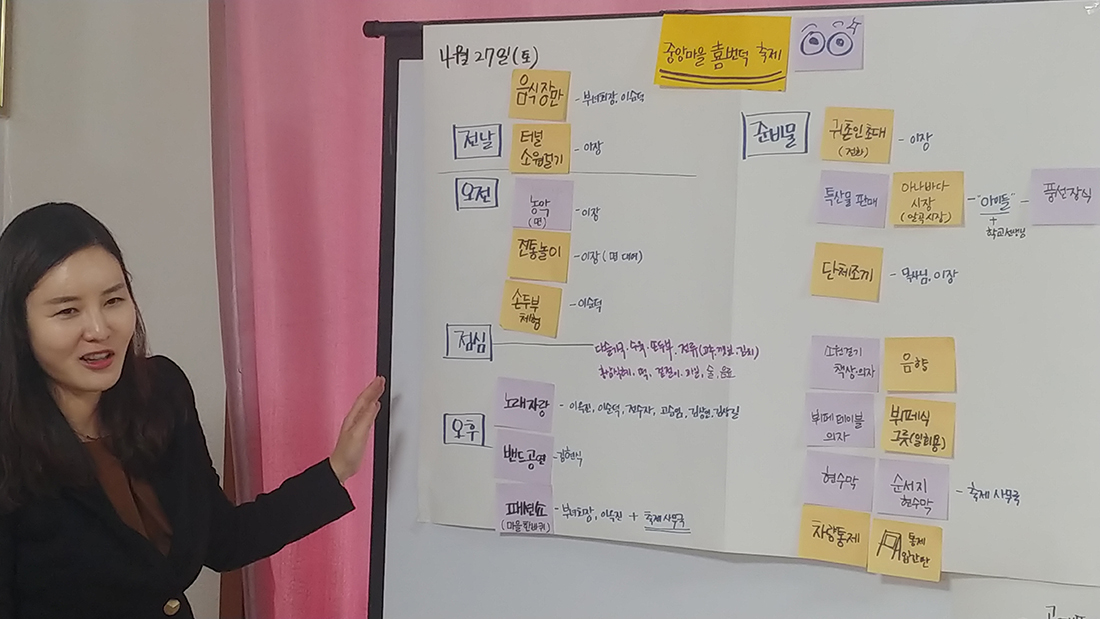 4월 27일(토)
중앙마을 흠뻑덕 축제
음식장만
- 부녀회장, 이순덕
전날
터널
소원걸기
- 이장
오전
농악
(면)
- 이장
전통놀이
- 이장 (면 대여)
손두부
체험
- 이순덕
점심
다슬기국·수육·손두부·전류(고추,깻잎,김치)
떡, 겉절이, 술, 음료
오후
노래자랑
- 이옥진, 이순덕, 전수자, 고승염,
밴드공연
- 김현식
패션쇼
(마을한바퀴)
- 부녀회장, 이옥진 + 축제사무국
준비물
귀촌인초대
(전화)
- 이장
특산물 판매
아나바다
시장
(알곡시장)
- "아이들"
+
학교선생님
- 풍선장식
단체조끼
- 목사님, 이장
소원걸기
책상·의자
음향
뷔페테이블
의자
뷔페식
그릇(일회용)
현수막
순서지
현수막
- 축제 사무국
차량통제
통제
입간판